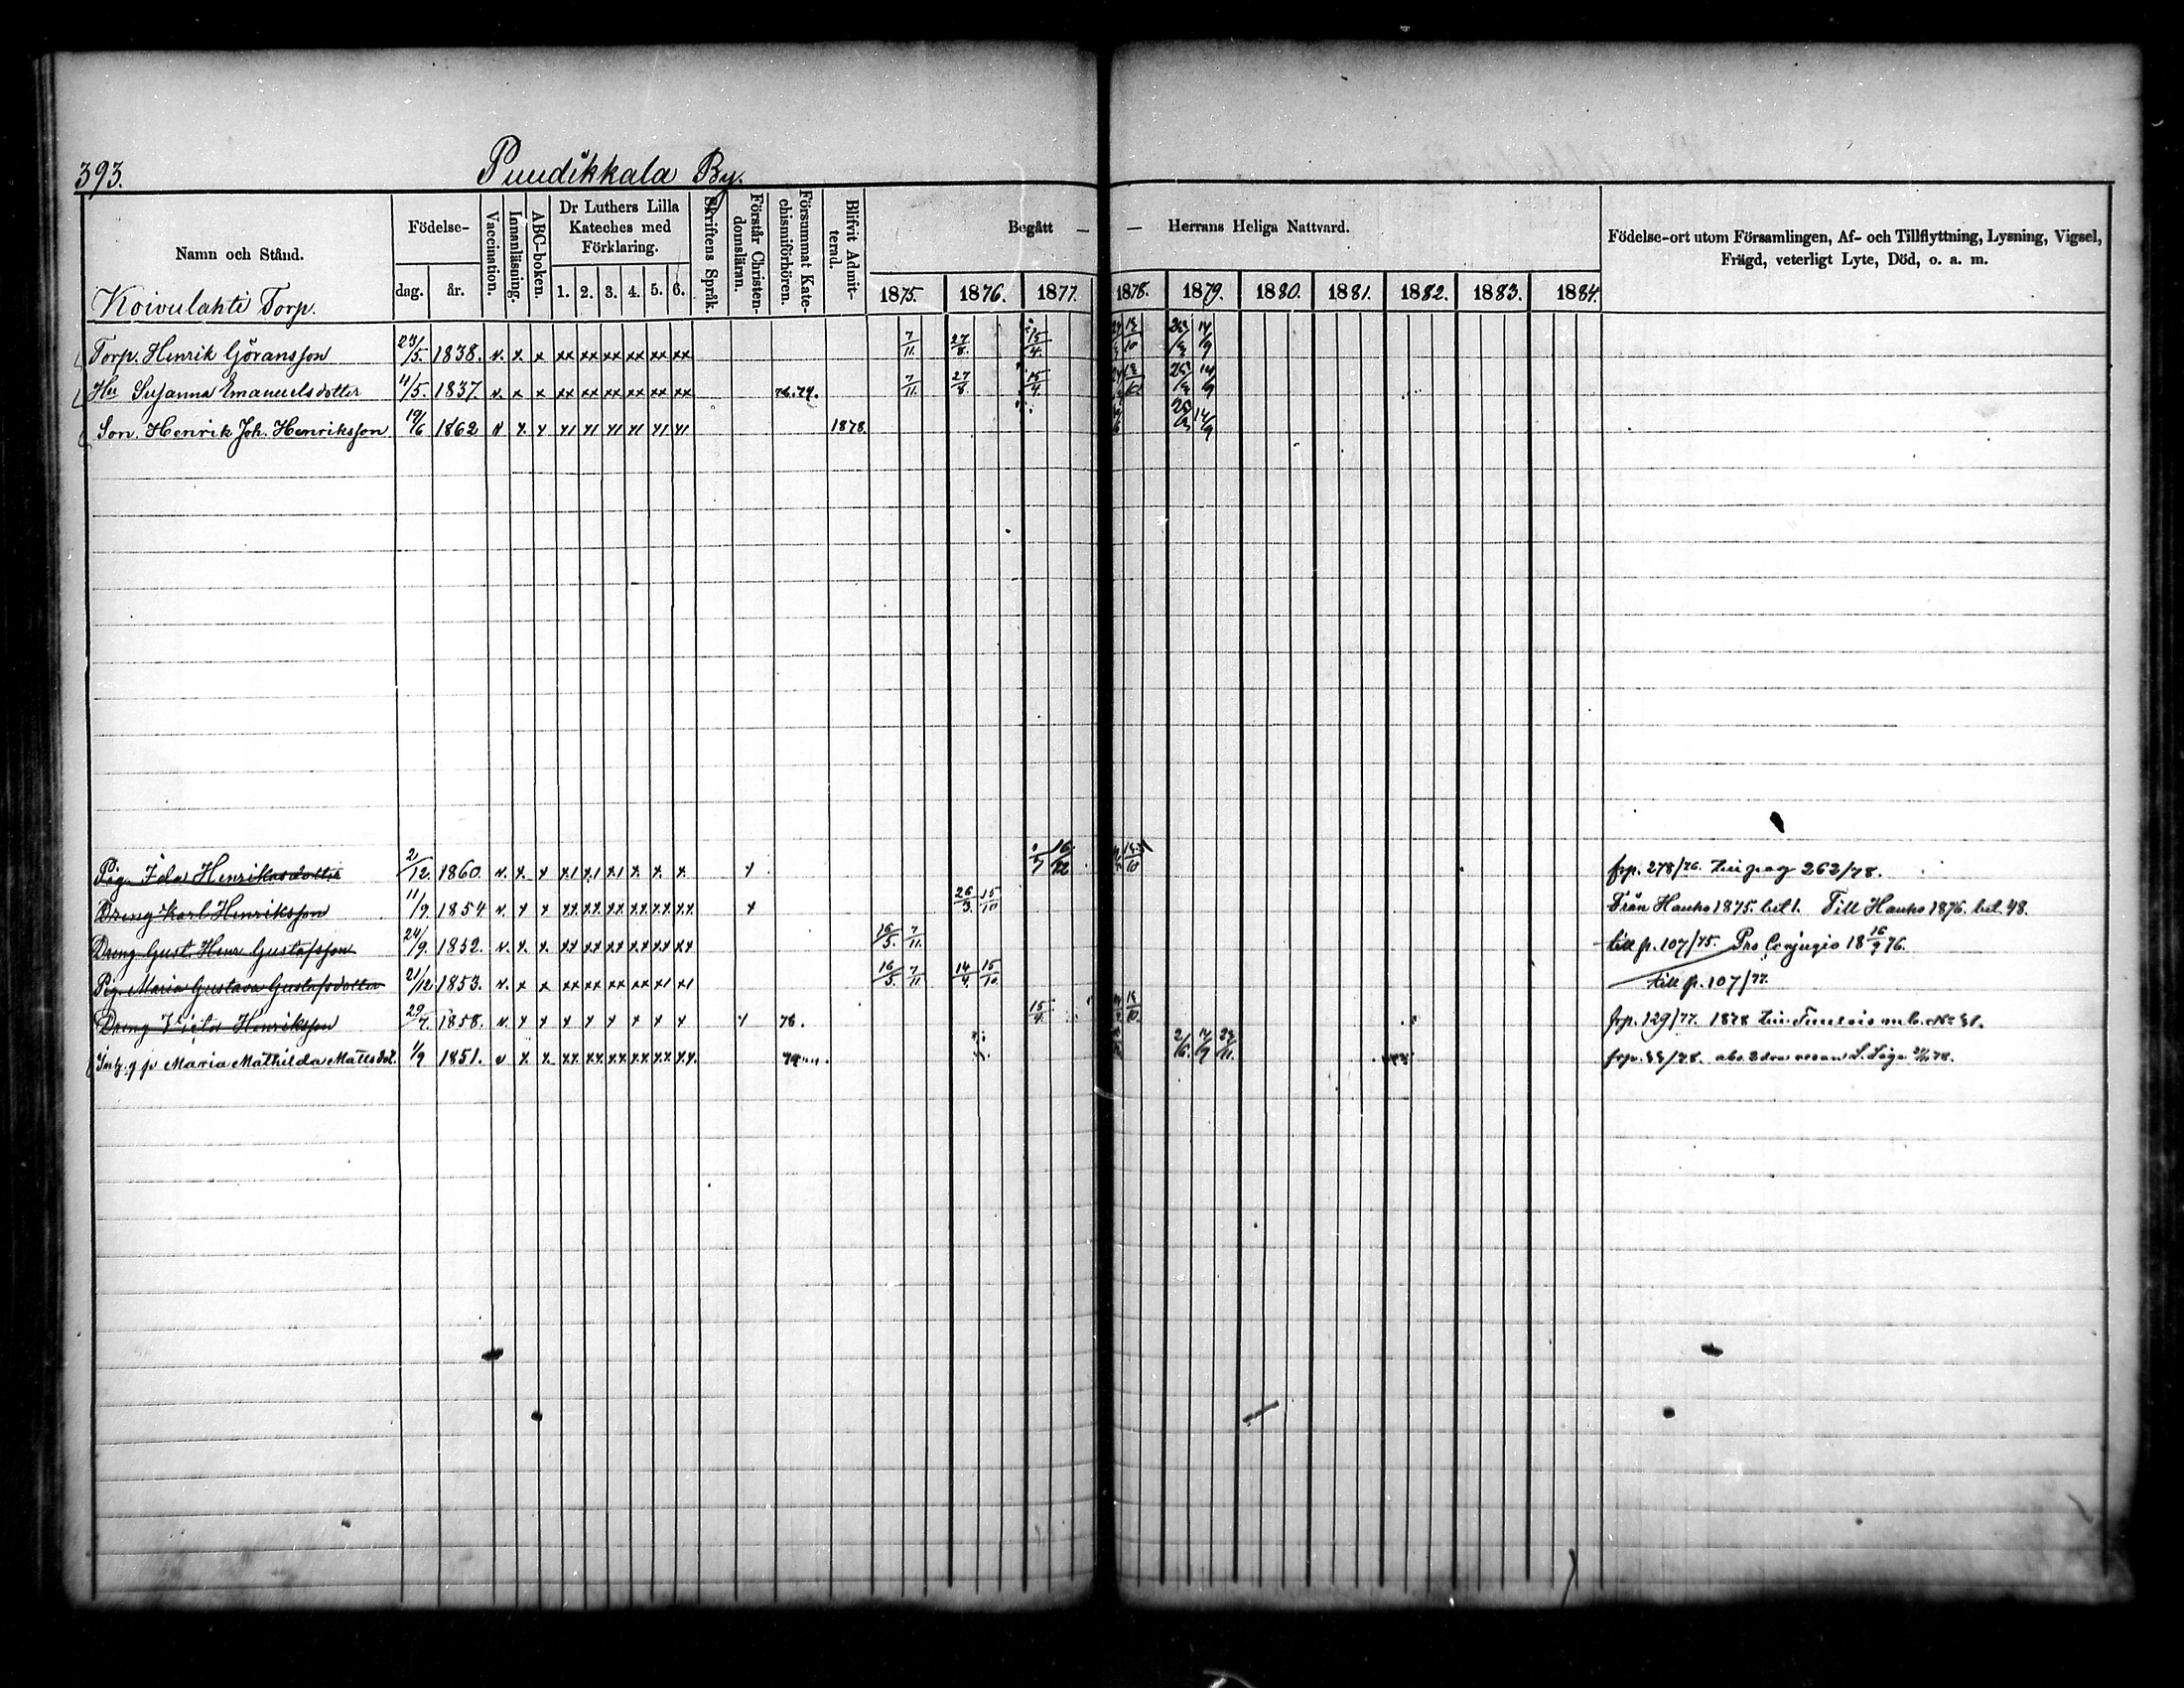 393. Puudikkala By.
Namn och Stånd. Födelse- dag. år. Vaccination. Innanläsning. ABC-boken. Dr Luthers Lilla Kateches med Förklaring. 1. 2. 3. 4. 5. 6. Skriftens Språk. Förstår Christendomsläran. Försummat Katechismiförhören. Blifvit Admitterad. Begått — — Herrans Heliga Nattvard. Födelse-ort utom Församlingen, Af- och Tillflyttning, Lysning, Vigsel,
Frägd, veterligt Lyte, Död, o. a. m.
1875. 1876. 1877. 1878. 1879. 1880. 1881. 1882. 1883. 1884.
Koivulahti Torp.
Torp. Henrik Göransson 23/5. 1838. v. x x xx xx xx xx xx xx 7/11. 27/8. 15/4.
Hu Susanna Emanuelsdotter 11/5. 1837. v. x x xx xx xx xx xx xx 7/11. 27/8. 15/4.
Son. Henrik Joh. Henriksson 19/6 1862 v x x x1 x1 x1 x1 x1 x1 1878. 14/9
Pig. Ida Henriksdotter 2/12. 1860. v. x. x x1 x1 x1 x x. x. x 16/12 frp. 278/76. pag 262/78.
Dreng Karl Henriksson 11/9. 1854 v. x x xx xx xx xx xx xx x 26/3. 15/10 Från Hauho 1875. bet 1. Till Hauho 1876. bet. 48.
Dreng Gust. Henr. Gustafsson 24/9. 1852. v. x. x. xx xx xx xx xx xx 16/5. 7/11. till p. 107/75. Pro Conjugio 18 16/9 76.
Pig. Maria Gustava Gustafsdotter 21/12 1853. v. x x xx xx xx xx x1 x1 16/5. 7/11 14/4. 15/10. till p. 107/77.
Dreng Victor Henriksson 29/7. 1858. v. x x x x x x x x x 76. 15/4. 13/10. frp. 129/77. 1878
Maria Mathilda Mattsdot. 1/9 1851. v x x. xx xx xx xx xx xx. 2/6. 14/9